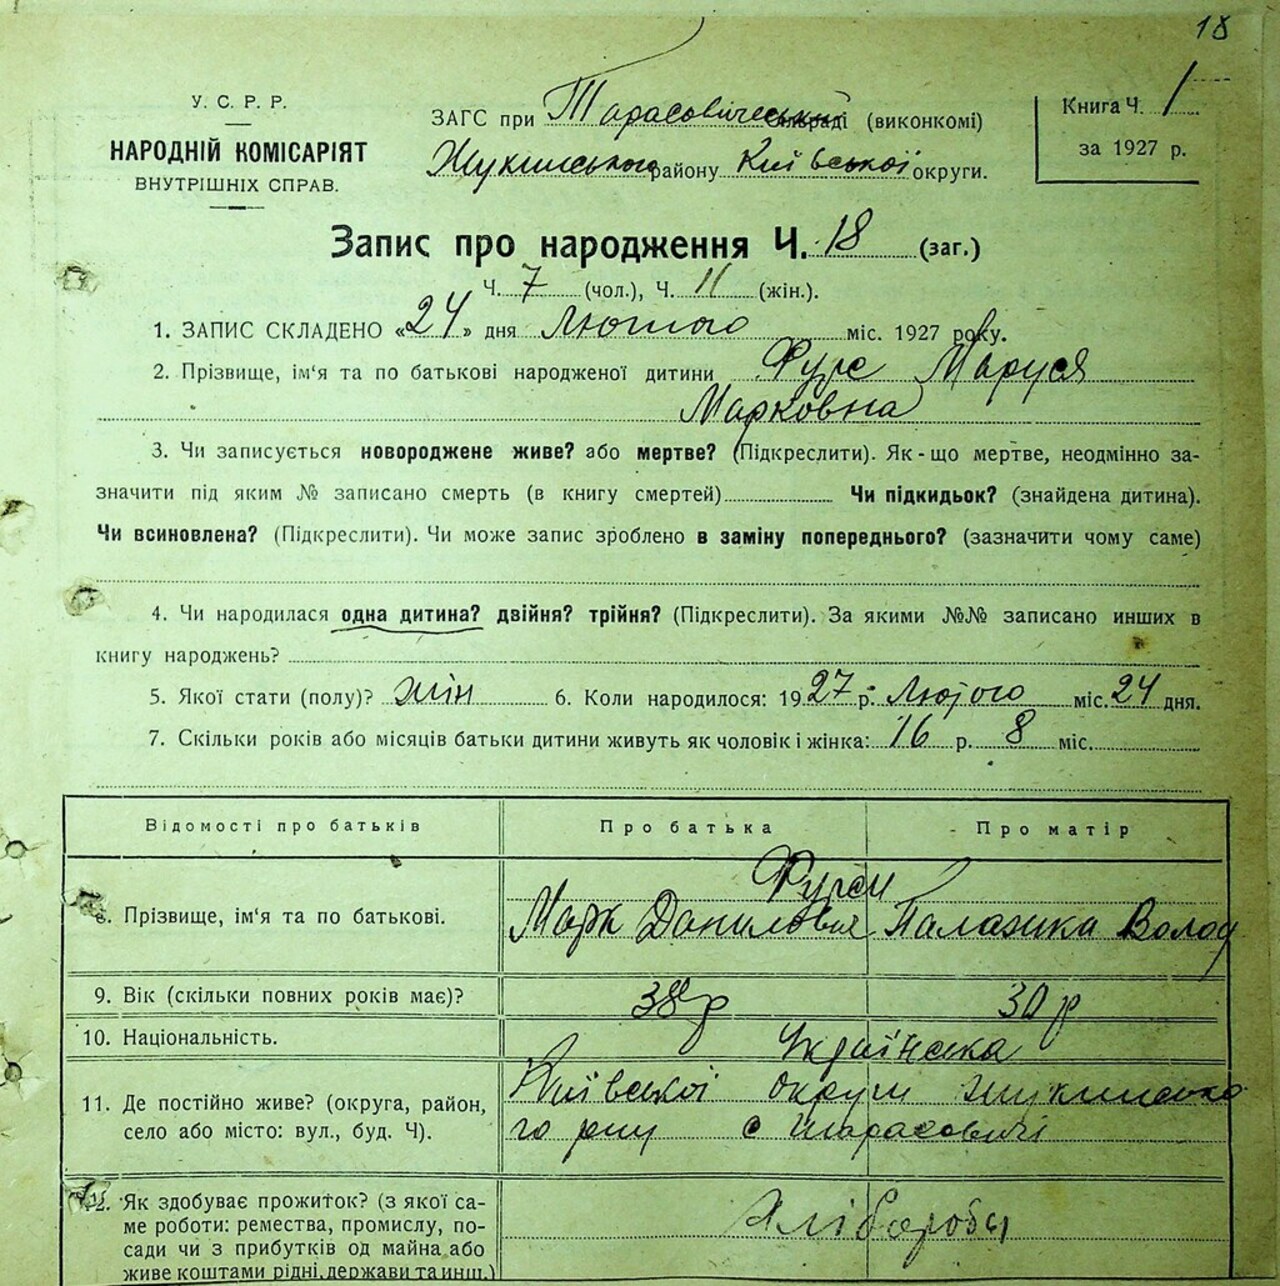 18
У. С. Р. Р.
НАРОДНІЙ КОМІСАРІЯТ
ВНУТРІШНІХ СПРАВ.
ЗАГС при Тарасовичській сільраді (виконкомі)
Жукинського району Київської округи.
Книга Ч. 1
за 1927 р.
Запис про народження Ч. 18 (заг.)
Ч. 7 (чол.), Ч. 11 (жін.).
1. ЗАПИС СКЛАДЕНО «24» дня Лютого міс. 1927 року.
2. Прізвище, ім'я та по батькові народженої дитини Фурс Маруся
Марковна
3. Чи записується новороджене живе? або мертве? (Підкреслити). Як-що мертве, неодмінно за-
значити під яким № записано смерть (в книгу смертей) Чи підкидьок? (знайдена дитина).
Чи всиновлена? (Підкреслити). Чи може запис зроблено в заміну попереднього? (зазначити чому саме)
4. Чи народилася одна дитина? двійня? трійня? (Підкреслити). За якими №№ записано инших в
книгу народжень?
5. Якої стати (полу)? жін 6. Коли народилося: 1927 р. Лютого міс. 24 дня.
7. Скільки років або місяців батьки дитини живуть як чоловік і жінка: 16 р. 8 міс.
Відомості про батьків Про батька Про матір
Фурси
8. Прізвище, ім'я та по батькові. Марк Данилович Палажка Волод
9. Вік (скільки повних років має)? 38 р 30 р
10. Національність. Українська
11. Де постійно живе? (округа, район, Київської округи Жукинсько
село або місто: вул., буд. Ч). го рну с Тарасовичі
12. Як здобуває прожиток? (з якої са- Хлібороби
ме роботи: ремества, промислу, по-
сади чи з прибутків од майна або
живе коштами рідні, держави та инш.)